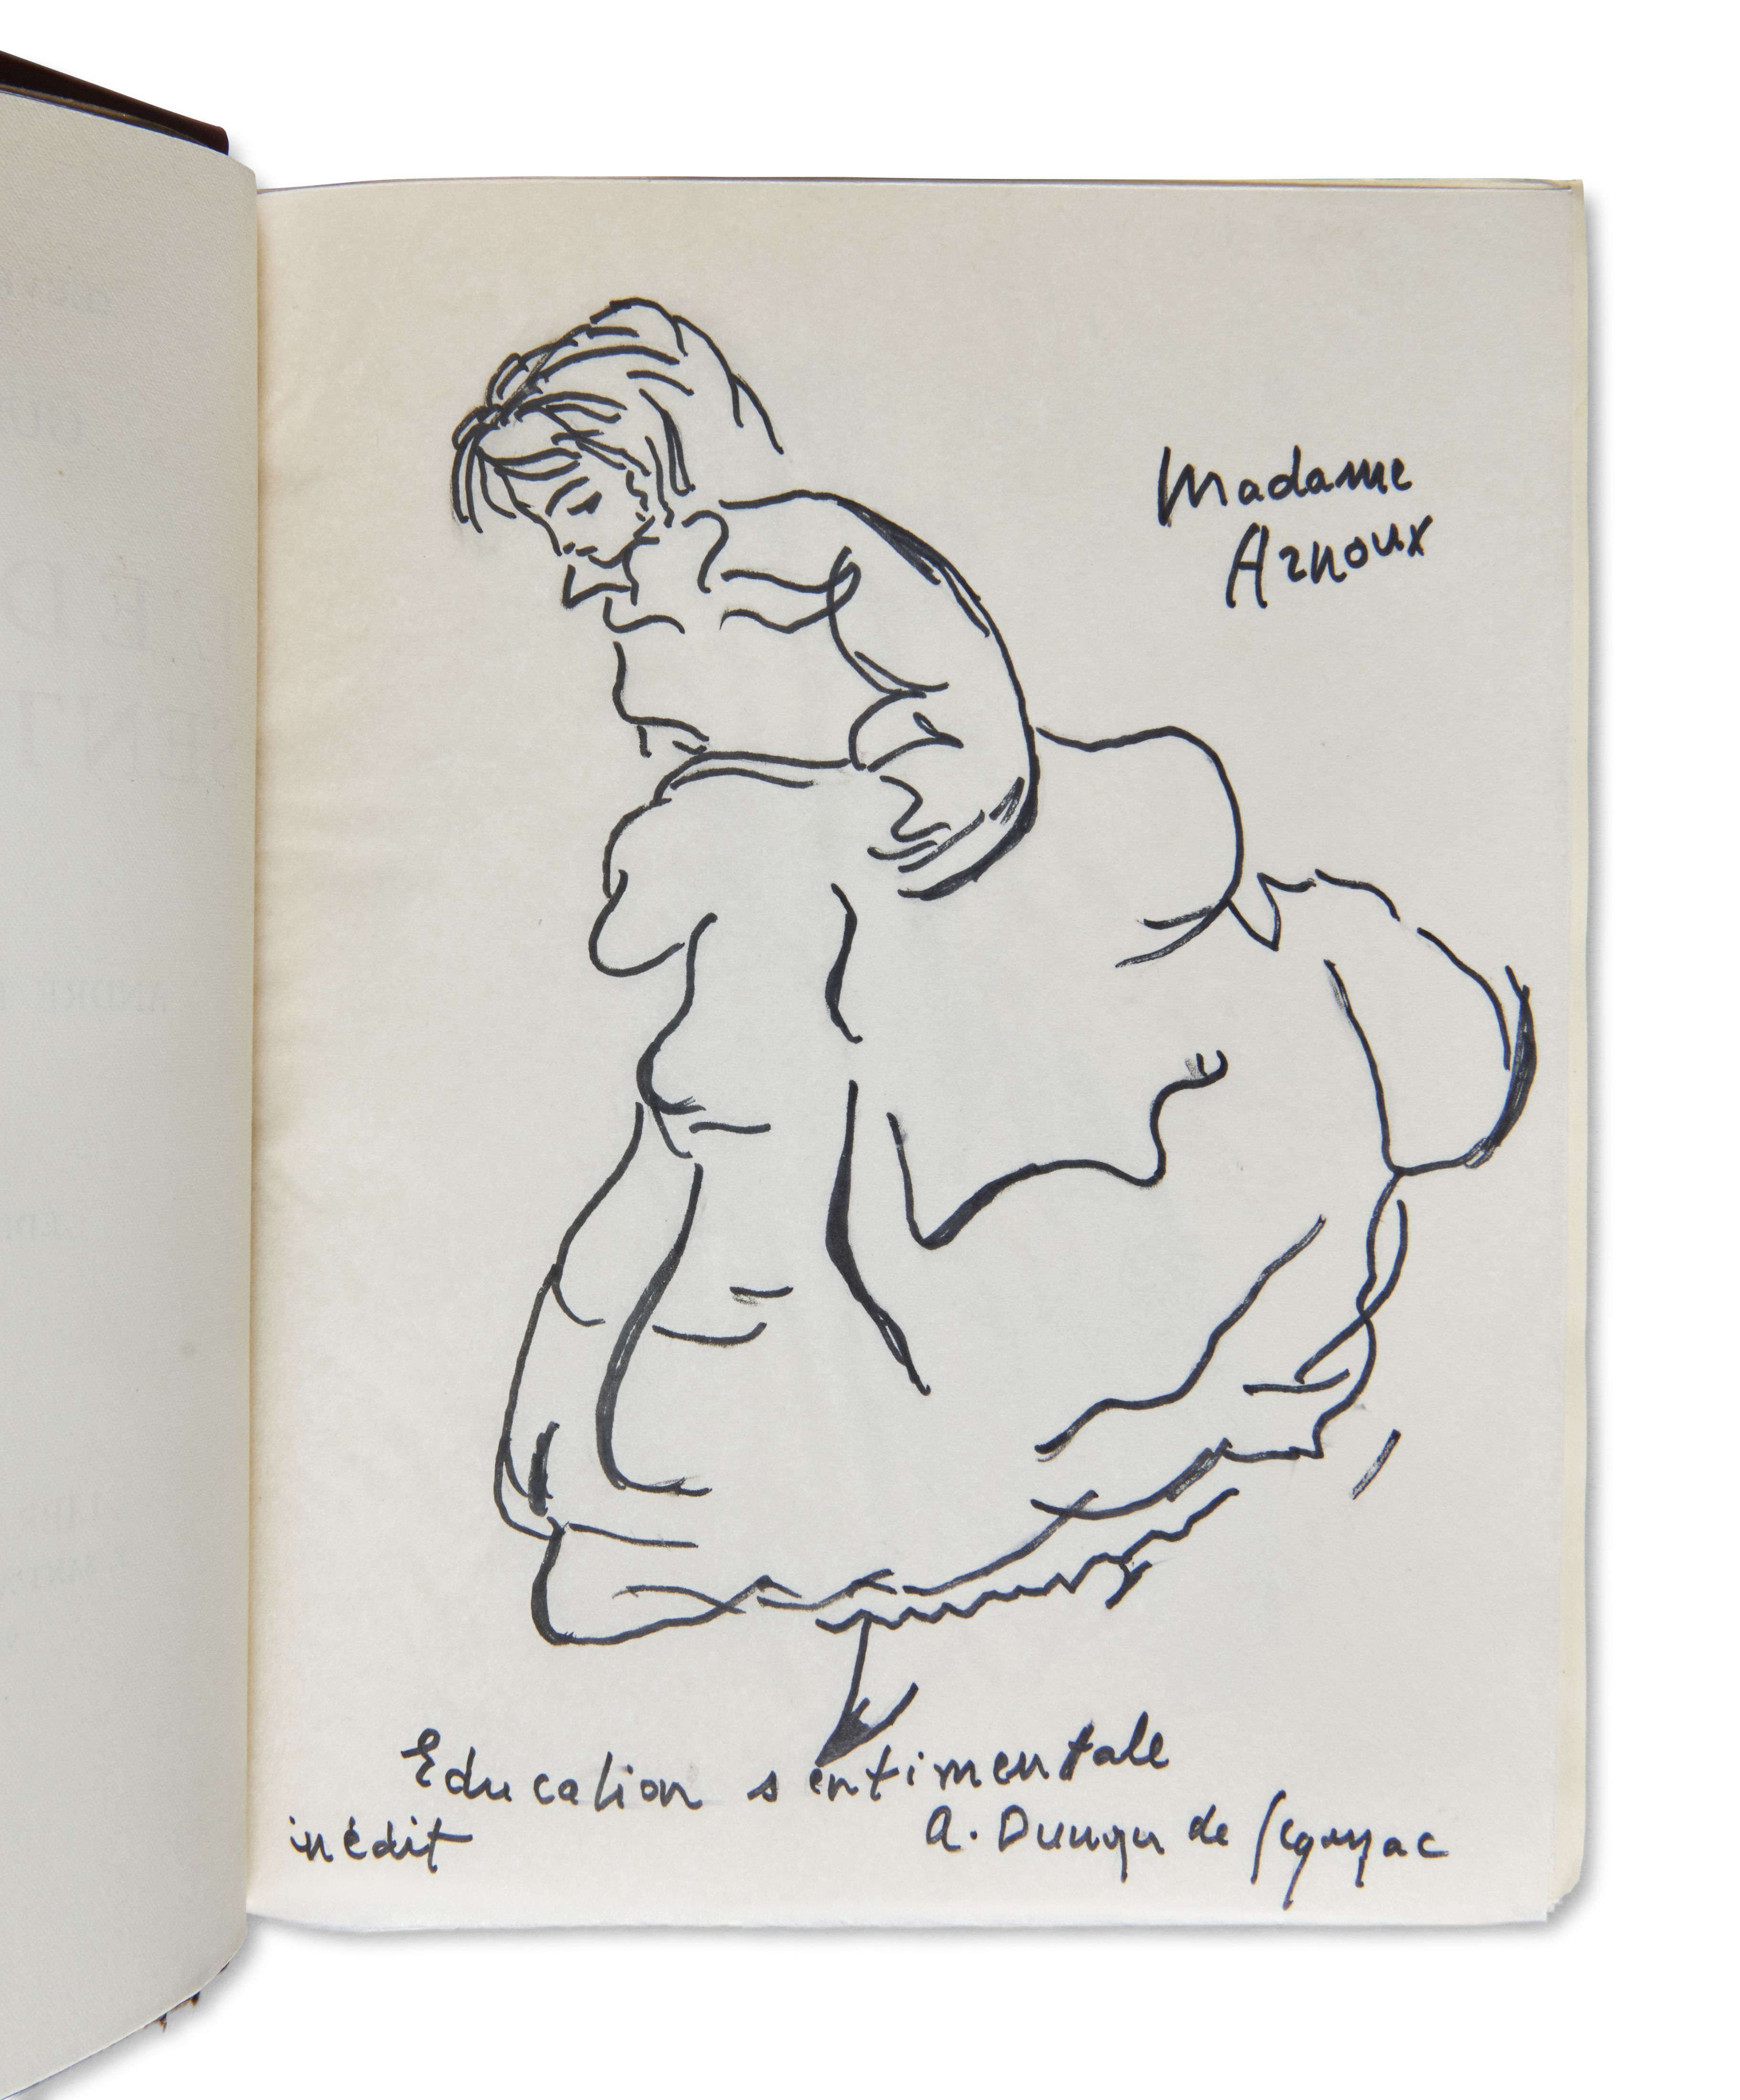 Madame
Arnoux
Education sentimentale
inédit
A. Dunoyer de Segonzac